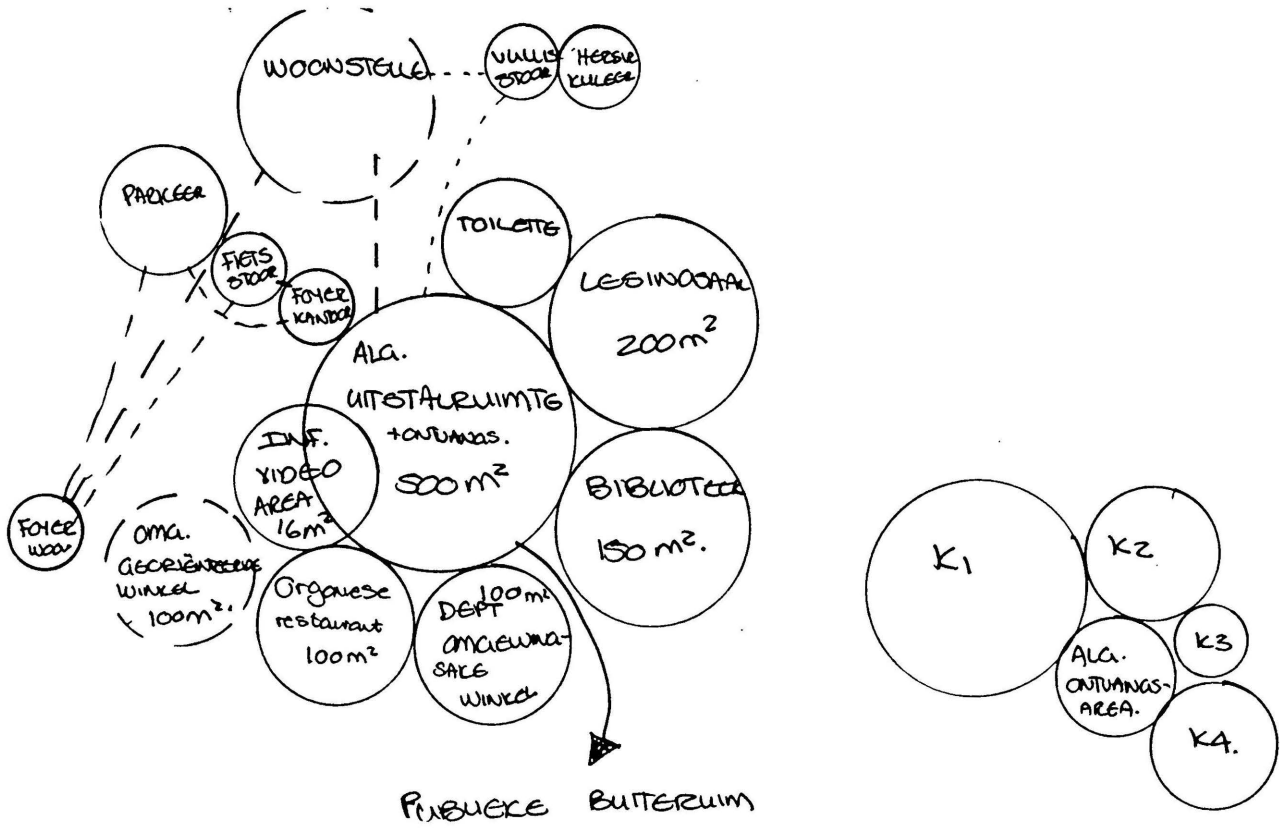 WOONSTELLE
VULLIS
STOOR
HERSIR
KULEER
PARKEER
TOILETTE
FIETS
STOOR
FOYER
KANTOOR
LESINGSAAL
200m²
ALG.
UITSTALRUIMTE
+ONTVANGS.
500m²
INF.
VIDEO
AREA
16m²
BIBLIOTEEK
150m².
FOYER
WOON
OMG.
GEORIËNTEERDE
WINKEL
100m².
Organiese
restaurant
100m²
100m²
DEPT
OMGEWING-
SAKE
WINKEL
PUBLIEKE BUITERUIM
K1
K2
K3
ALG.
ONTVANGS-
AREA.
K4.